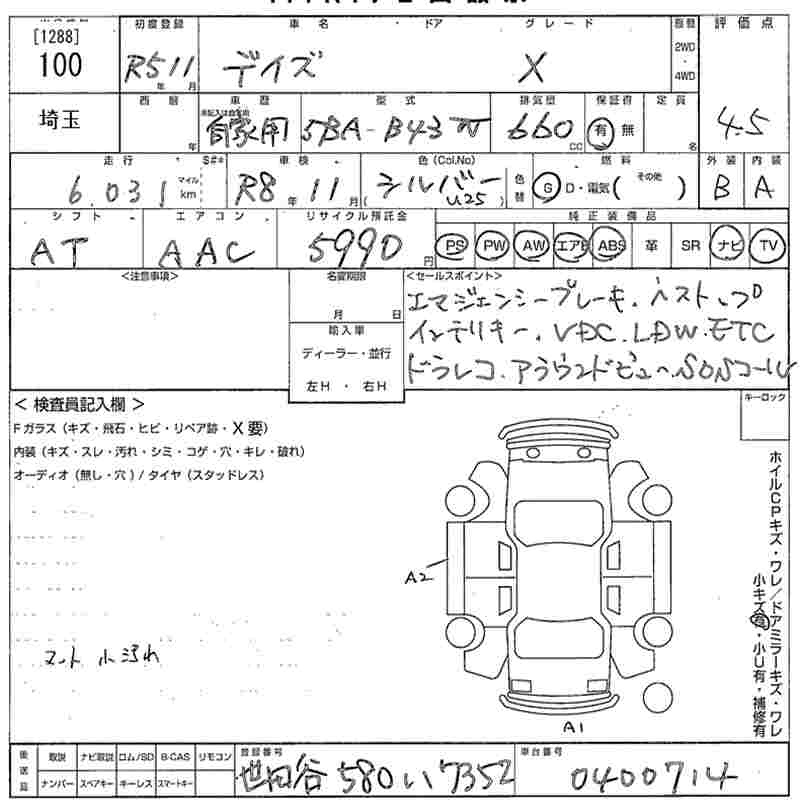 初度登録 車名・ドア グレード 駆動 評価点
[1288]
100 R5 11 年 月 デイズ X 2WD・4WD 4.5
西暦 車歴 型式 排気量 保証書 定員
埼玉 年 自家用 5BA-B43W 660 CC 有 無 名
走行 S#* 車検 色(Col.No) 燃料 外装 内装
6,031 マイル km R8年 11月 (シルバー U25) 色替 G・D・電気( その他 ) B A
シフト エアコン リサイクル預託金 純正装備品
AT AAC 5990円 PS PW AW エアB ABS 革 SR ナビ TV
<注意事項> 名変期限 <セールスポイント>
月 日
輸入車
ディーラー・並行
左H・右H
エマジェンシーブレーキ.
インテリキー.VDC.LDW.ETC
ドラレコ.アラウンドビュー.SOSコール
<検査員記入欄> キーロック
Fガラス(キズ・飛石・ヒビ・リペア跡・X要)
内装(キズ・スレ・汚れ・シミ・コゲ・穴・キレ・破れ)
オーディオ(無し・穴)/タイヤ(スタッドレス)
ホイルCPキズ・ワレ/ドアミラーキズ・ワレ
小キズ有・小U有・補修有
A2
マット小汚れ
A1
後送品 取説 ナビ取説 ロム/SD B-CAS リモコン 登録番号 車台番号
ナンバー スペアキー キーレス スマートキー 世田谷 580 い 7352 0400714